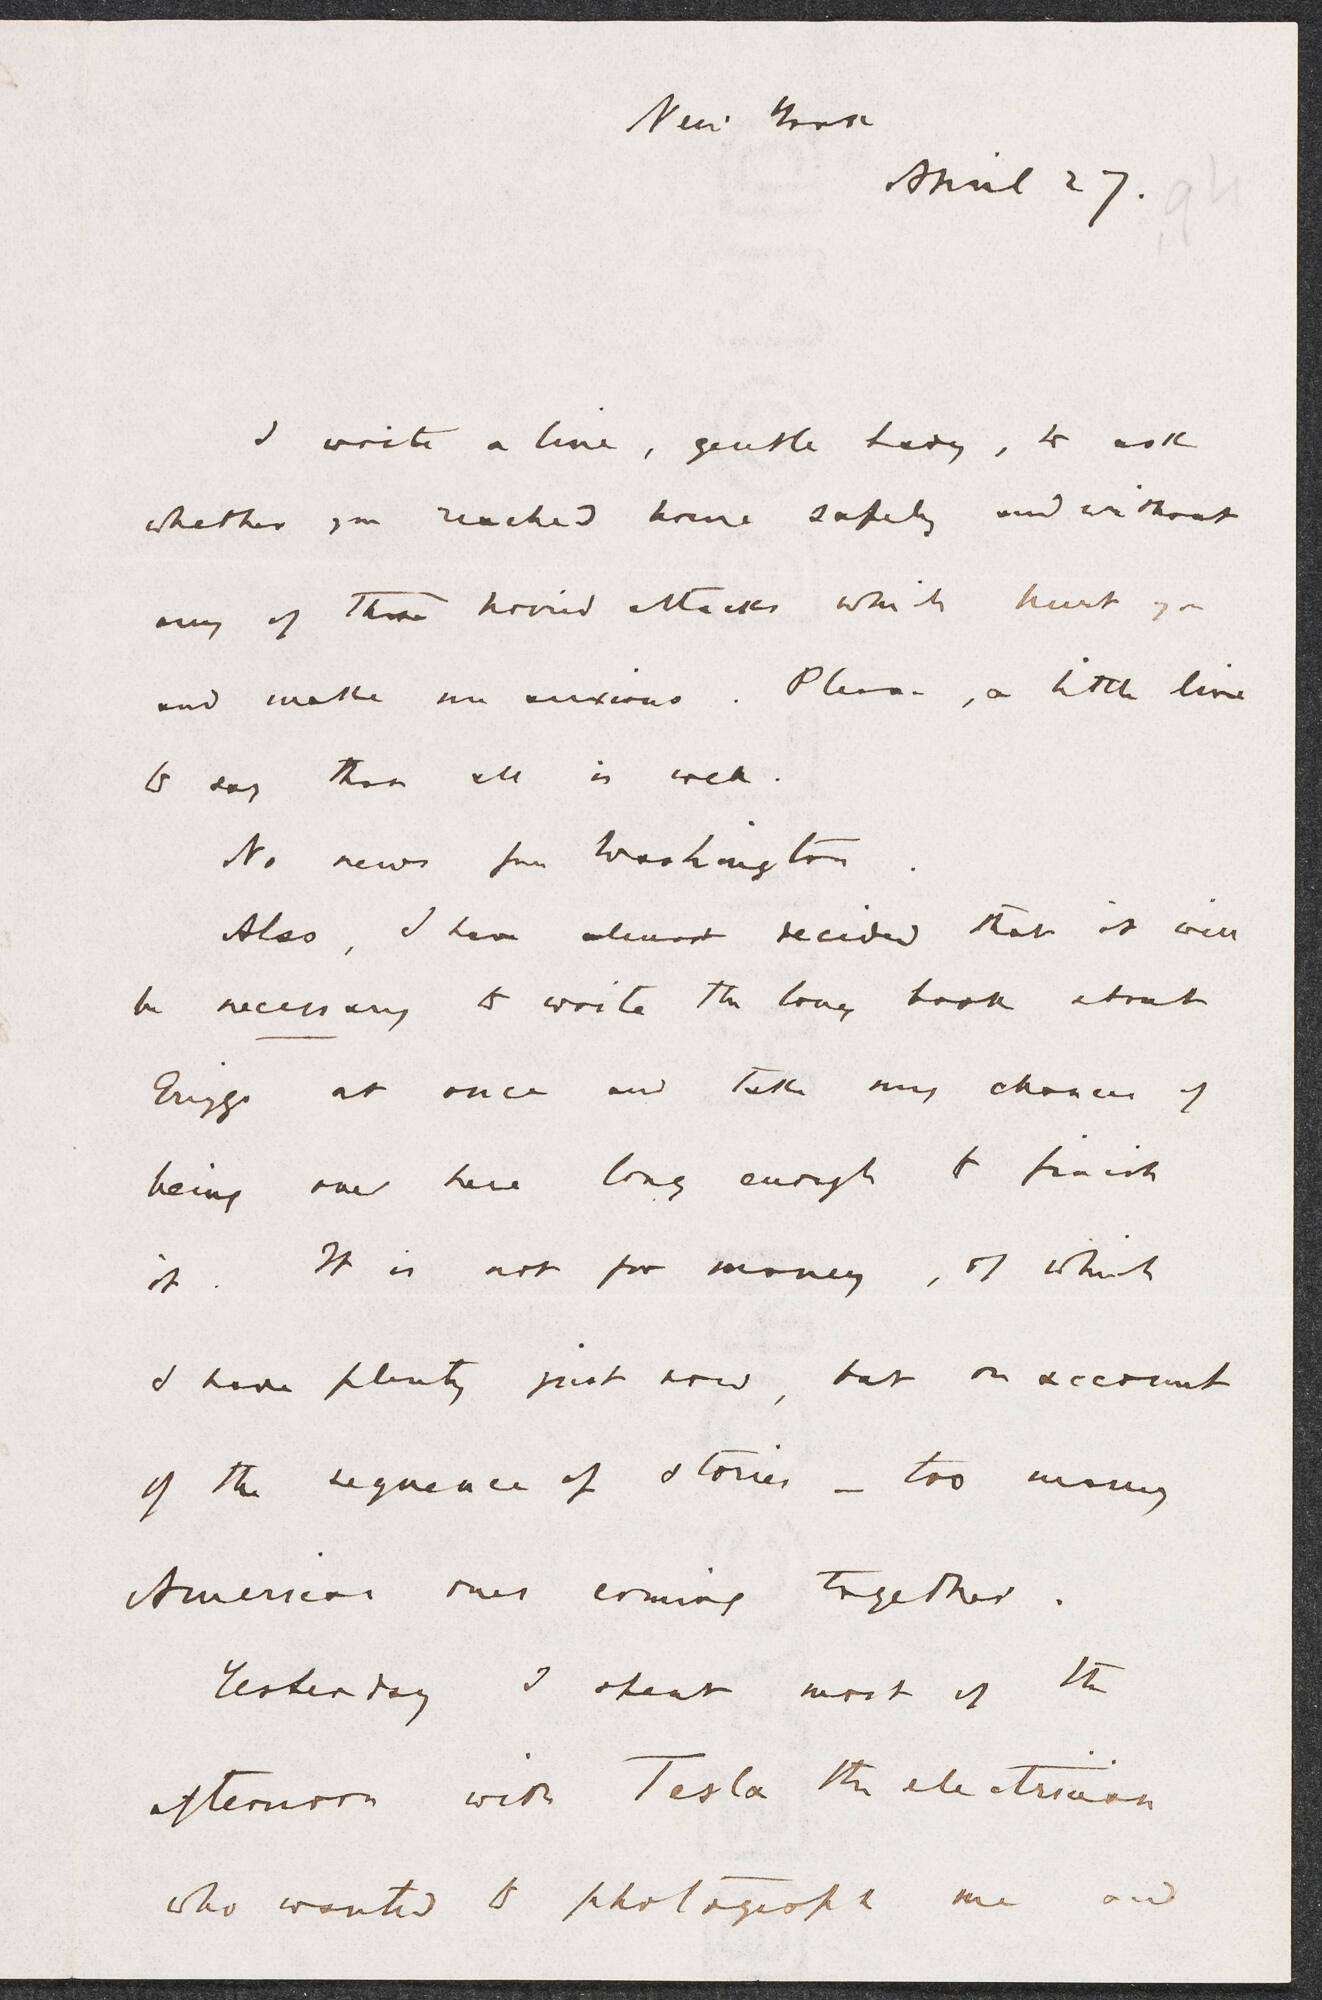 New York
April 27. '94
I write a line, gentle lady, to ask
whether you reached home safely and without
any of those horrid attacks which hurt you
and make me anxious. Please, a little line
to say that all is well.
No news from Washington.
Also, I have almost decided that it will
be necessary to write the long book about
at once and take my chances of
being over here long enough to finish
it. It is not for money, of which
I have plenty just now, but on account
of the sequence of stories – too many
American ones coming together.
Yesterday I spent most of the
afternoon with Tesla the electrician
who wanted to photograph me and